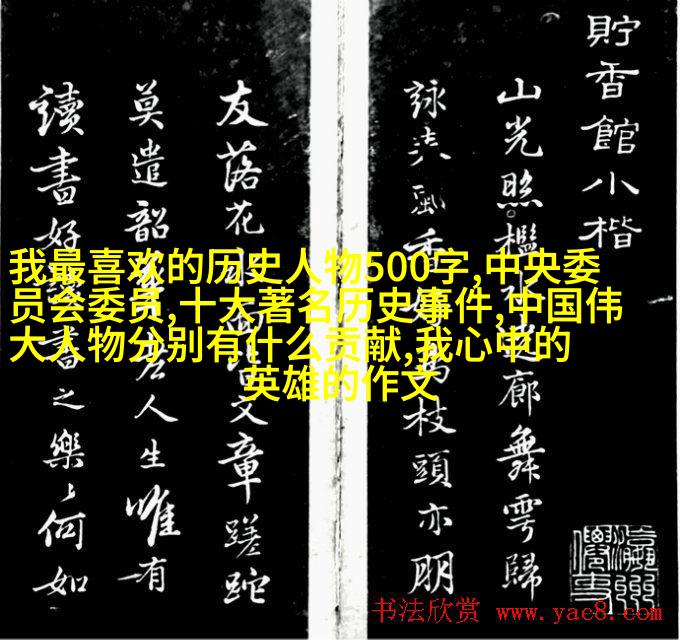 貯香館小楷
山光照檻水繞廊舞雩歸
詠春風香好鳥枝頭亦朋
友落花水面皆文章蹉跎
莫遣韶光老人生唯有
讀書好讀書之樂樂何如
我最喜欢的历史人物500字,中央委
员会委员,十大著名历史事件,中国伟
大人物分别有什么贡献,我心中的
英雄的作文
书法欣赏 www.yac8.com